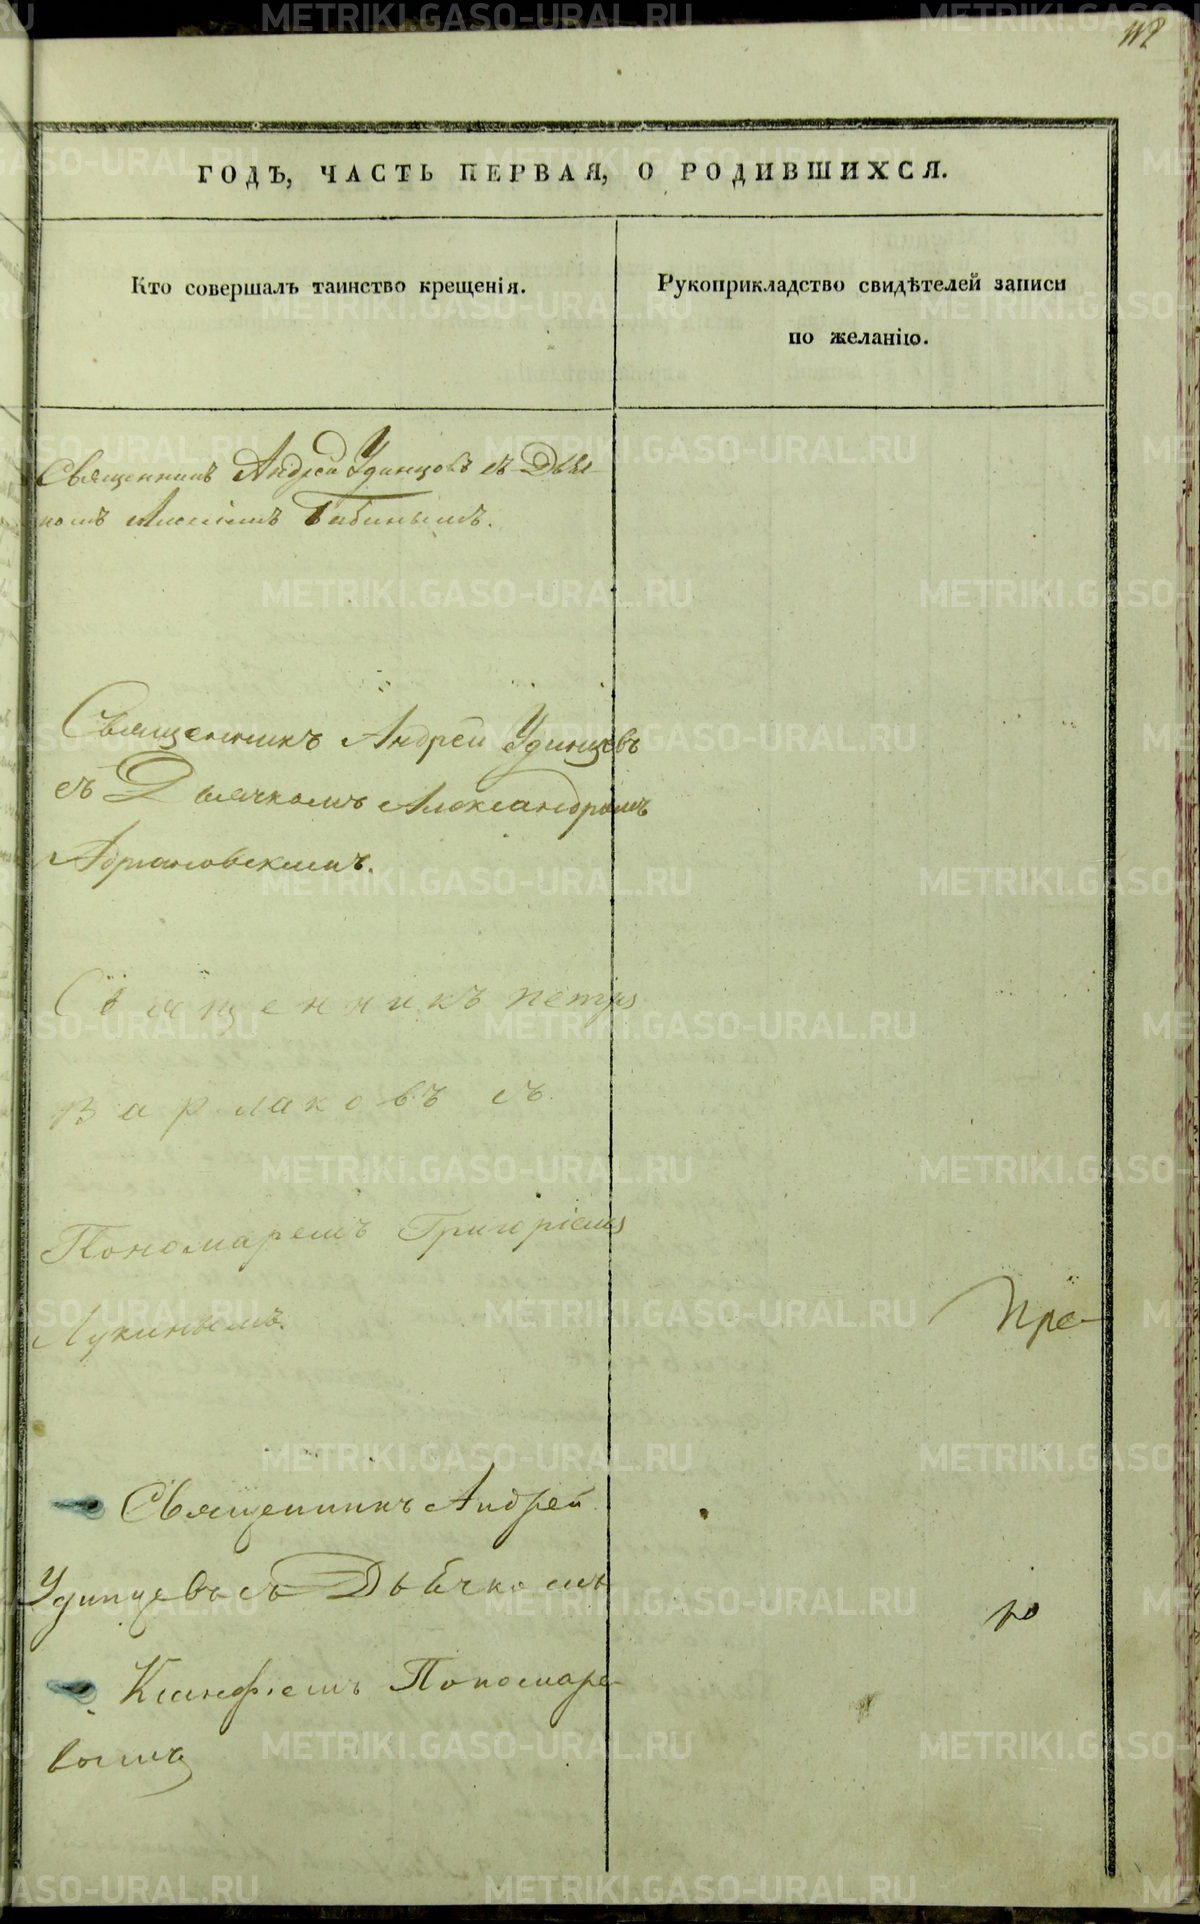 118
ГОДЪ, ЧАСТЬ ПЕРВАЯ, О РОДИВШИХСЯ.
Кто совершалъ таинство крещенія.
Рукоприкладство свидѣтелей записи
по желанію.
Священникъ Андрей Удинцовъ съ Дьяч-
комъ Бабинымъ.
Священникъ Андрей Удинцевъ
съ Дьячкомъ Александромъ
Адриановскимъ.
Священникъ Петръ
Варлаковъ съ
Пономаремъ Григоріемъ
Лукинымъ.
Пре-
Священникъ Андрей
Удинцевъ съ Дьячкомъ
Ксанфіемъ Пономаре-
вымъ
METRIKI.GASO-URAL.RU